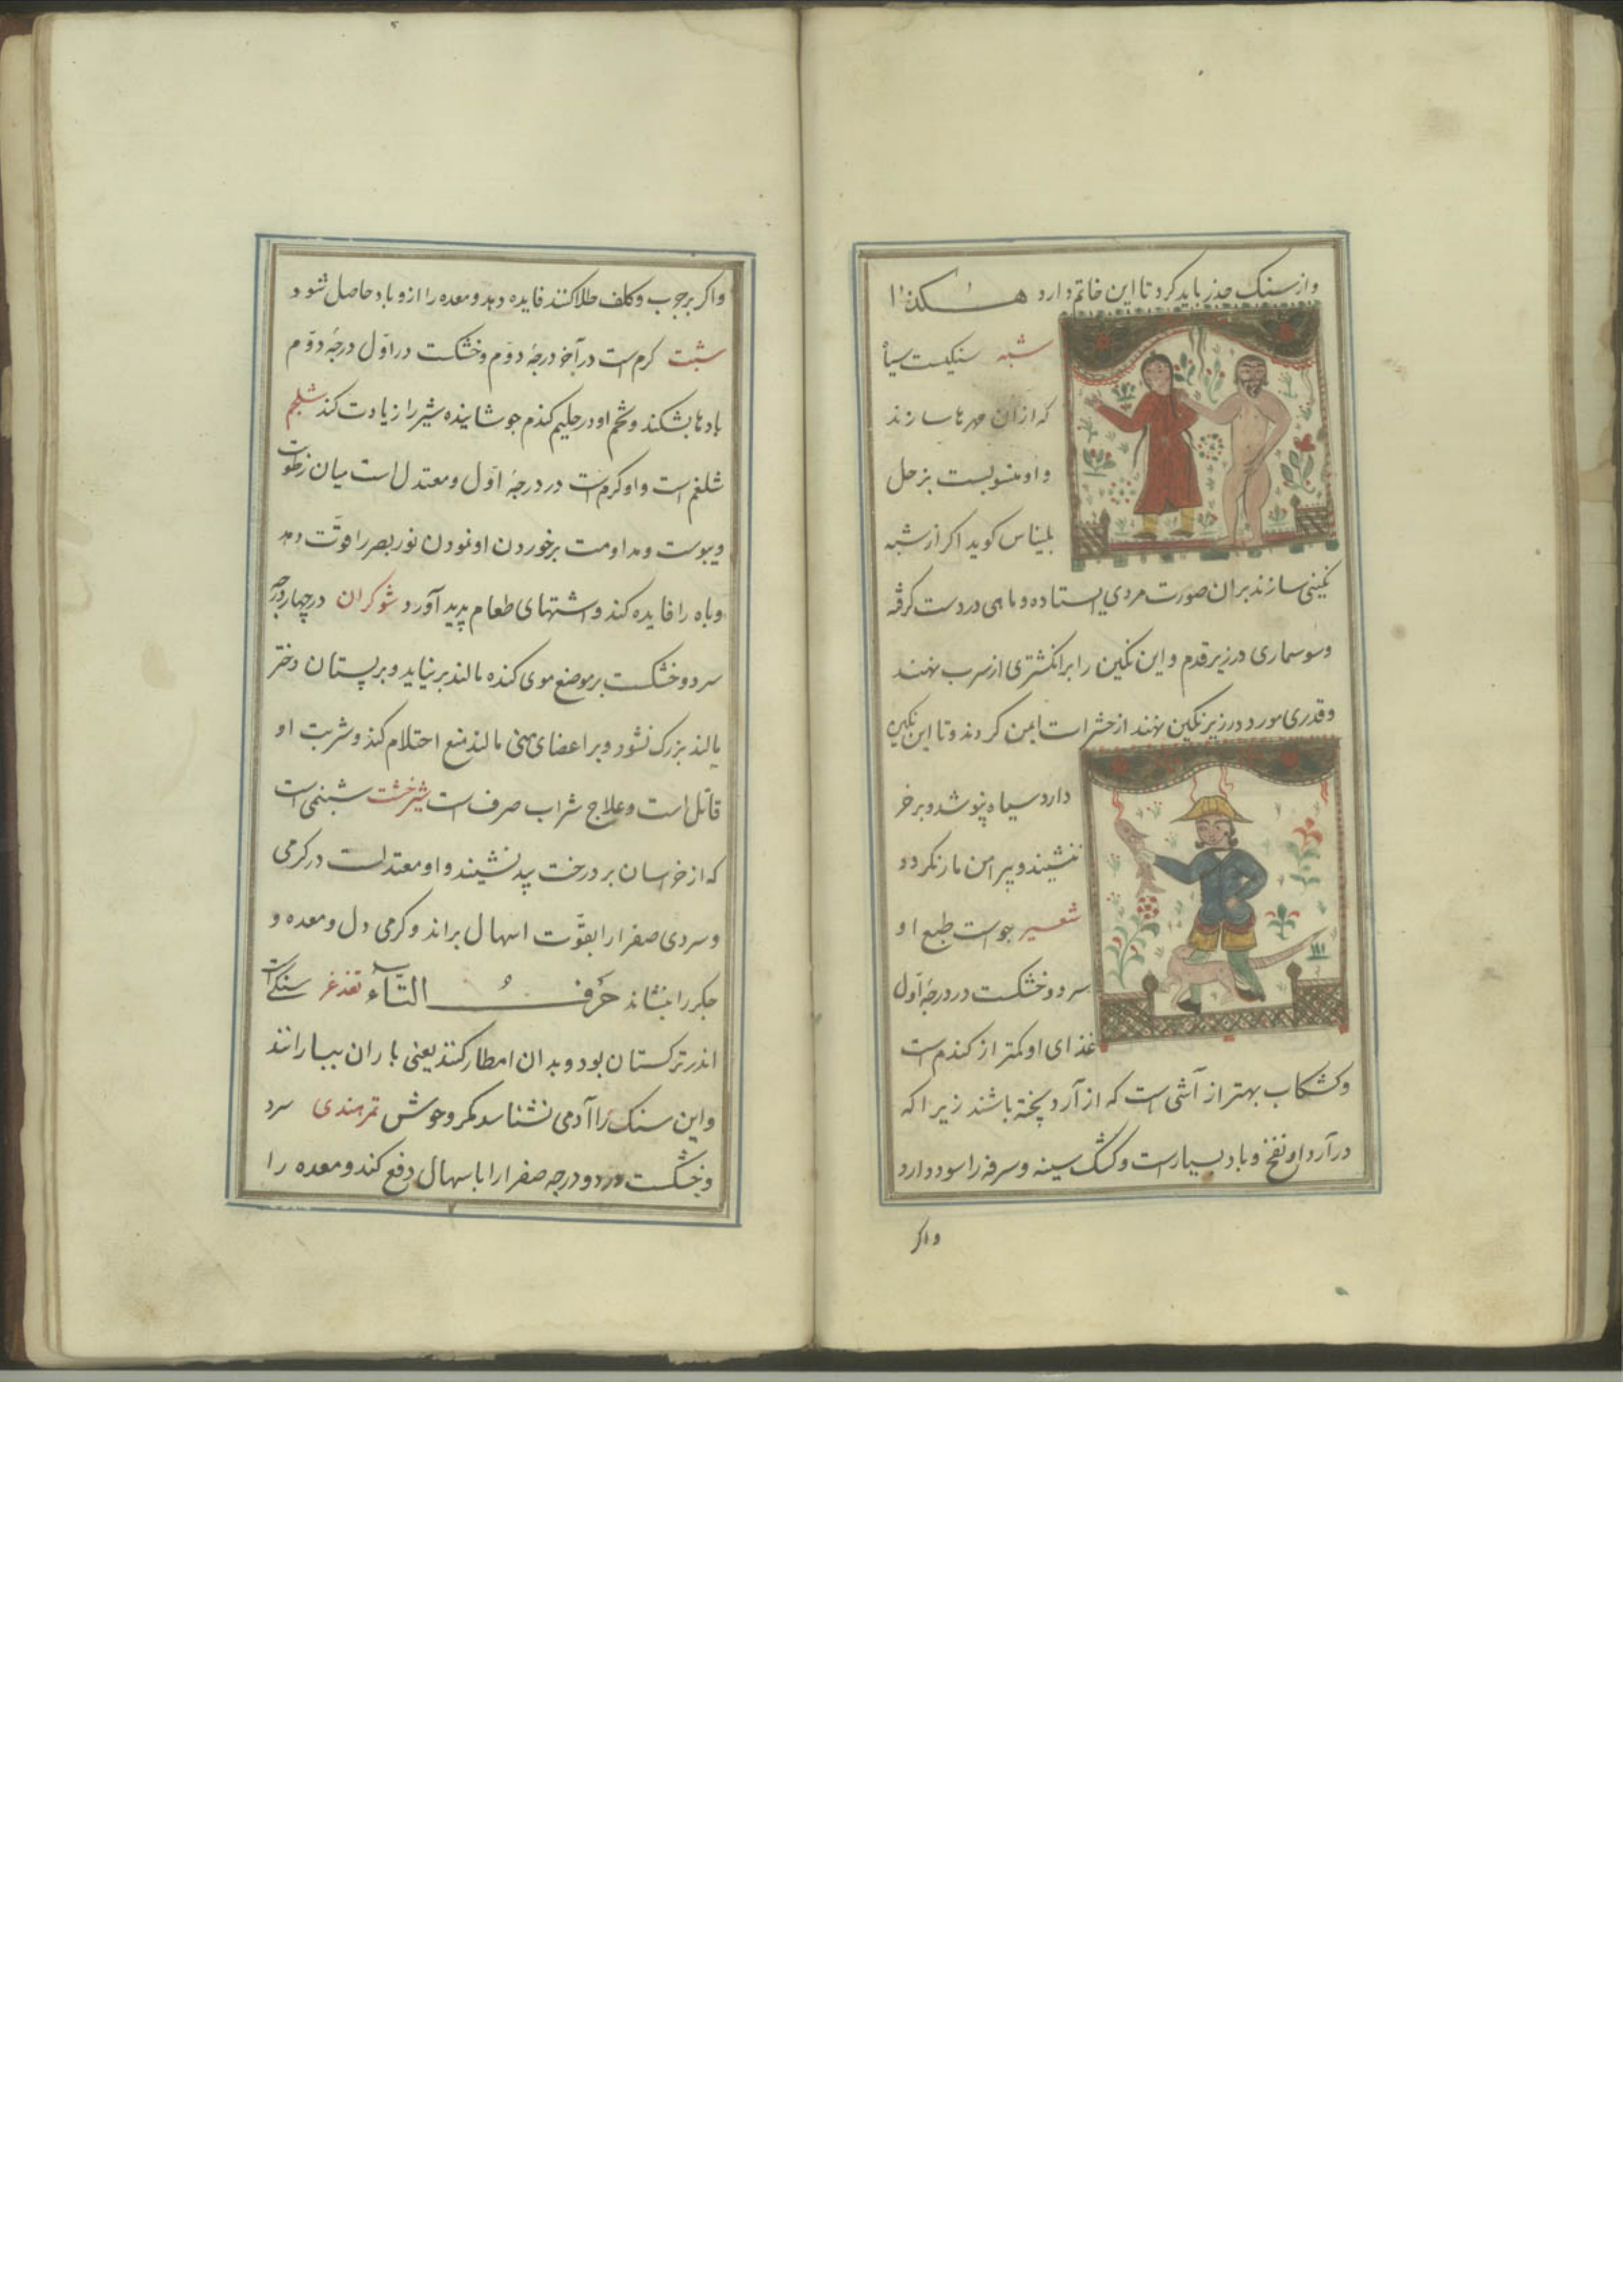 واز سنک حذر باید کرد تا این خاتم دارد هکذا
شبه سنکیست سیاه
که ازان مهرها سازند
واو منسوبست بزحل
بلیناس کوید اکر از شبه
نکینی سازند بران صورت مردی ایستاده وماهی دردست کرفته
وسوسماری درزیر قدم واین نکین را برانکشتری از سرب نهند
وقدری مورد درزیر نکین نهند از حشرات ایمن کردند وتا این نکین
دارد سیاه نپوشد وبرخر
ننشیند وپیرامن مار نکردد
شعیر جوست طبع او
سرد وخشکست در درجهٔ اول
غذای او کمتر از کندم است
وکشکاب بهتر از آشی است که از آرد پخته باشند زیرا که
در آرد او نفخ وباد بسیارست وکشک سینه وسرفه را سود دارد
واکر
واکر برجرب وکلف طلا کنند فایده دهد ومعده را ازو باد حاصل شود
شبت کرم است در آخر درجهٔ دوّم وخشکست در اوّل درجهٔ دوّم
بادها بشکند وتخم او در حلیم کندم جوشانیده شیر را زیادت کند شلجم
شلغم است واو کرم است در درجهٔ اوّل ومعتدل است میان رطوبت
ویبوست ومداومت برخوردن او نمودن نور بصر را قوّت دهد
وباه را فایده کند واشتهای طعام پدید آورد شوکران در چهار درجه
سرد وخشکست بر موضع موی کنده مالند برنیاید وبر پستان دختر
مالند بزرک نشود وبر اعضای منی مالند منع احتلام کند وشربت او
قاتل است وعلاج شراب صرف است شیرخشت شبنمی است
که از خراسان بر درخت بید نشیند واو معتدلست در کرمی
وسردی صفرا را بقوّت اسهال براند وکرمی دل ومعده و
جکر را بنشاند حَرفُ التّآء تغدغر سنکی است
اندر ترکستان بود وبدان امطار کنند یعنی باران ببارانند
واین سنک را آدمی نشناسد مکر وحوش تمرهندی سرد
وخشکست در دو درجه صفرا را باسهال دفع کند ومعده را